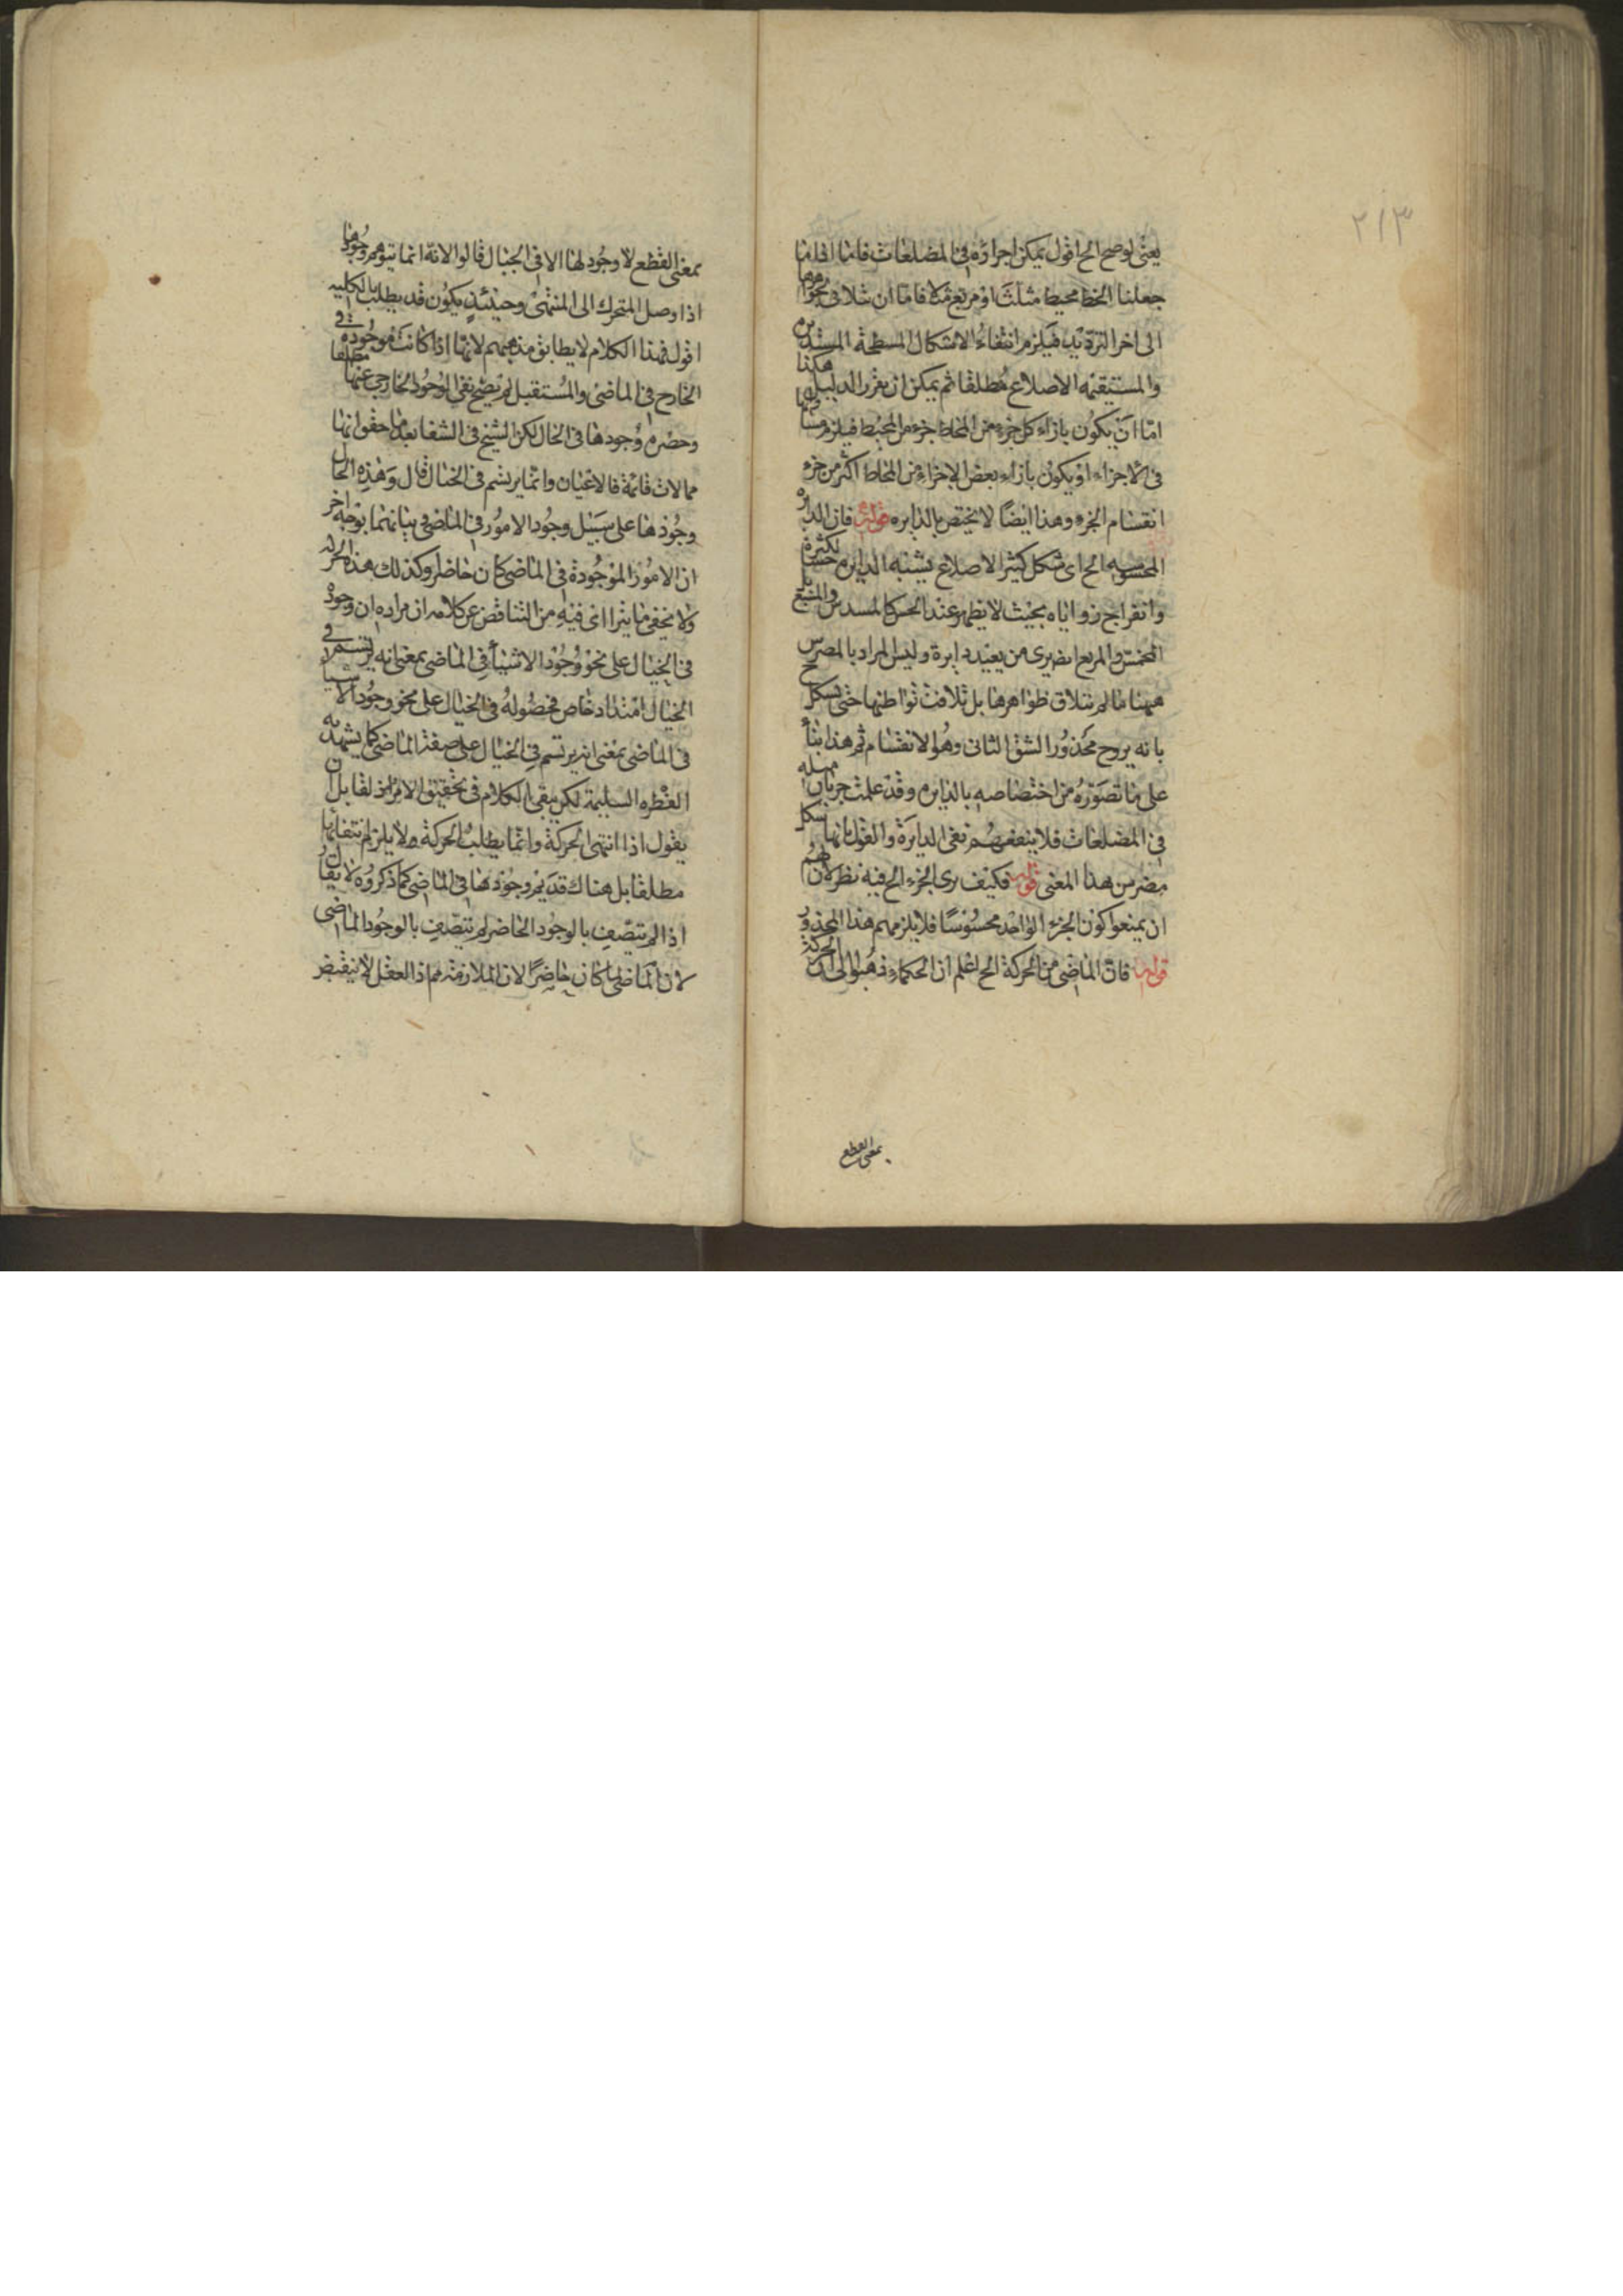 ٢١٣
يعنى لو صح الخ اقول يمكن اجراؤه فى المضلعات فانا اذا
جعلنا الخط محيط مثلث او مربع مثلا فاما ان تتلاقى
الى اخر الترديد فيلزم انتفاء الاشكال المسطحة المستديره
والمستقيمة الاضلاع مطلقا ثم يمكن ان يقرر الدليل هكذا
اما ان يكون بازاء كل جزء من المحاط جزء من المحيط فيلزم
فى الاجزاء او يكون بازاء بعض الاجزاء من المحاط اكثر من جزء
انقسام الجزء وهذا ايضا لا يختص بالدايره قوله فان الدايره
المحسوسه الخ اى شكل كثير الاضلاع يشبه الدايره حسا لكثرة
وانفراج زواياه بحيث لا يظهر عند الحس كالمسدس والمسبع بل
المخمس والمربع اصغر يرى من بعيد دايرة وليس المراد بالمضرس
ههنا ما لم يتلاق ظواهرها بل تلاقت بواطنها حتى
بانه يروح محذور الشق الثانى وهو الانقسام ثم هذا بناء
على ما تصوره من اختصاصه بالدايره وقد علمت جريان
فى المضلعات فلا ينفعهم نفى الدايرة والقول بانها شكل
مضرس بهذا المعنى قوله فكيف يرى الجزء الخ فيه نظر لان لهم
ان يمنعوا كون الجزء الواحد محسوسا فلا يلزمهم هذا المحذور
قوله فان الماضى من الحركة الخ اعلم ان الحكماء ذهبوا الى ان الحركة
بمعنى القطع
بمعنى القطع لا وجود لها الا فى الخيال قالوا لانه انما يتوهم وجودها
اذا وصل المتحرك الى المنتهى وحينئذ يكون قد بطلت بالكلية
اقول فهذا الكلام لا يطابق مذهبهم لانها اذا كانت موجودة فى
الخارج فى الماضى والمستقبل لم يصح نفى الوجود الخارجى عنها مطلقا
وحصرم وجودها فى الحال لكن الشيخ فى الشفا بعد ما حقق انها
مما لا ذات قائمة فى الاعيان وانما يرتسم فى الخيال قال وهذه الحال
وجودها على سبيل وجود الامور فى الماضى ويباينهما بوجه اخر
ان الامور الموجودة فى الماضى كان حاضر وكذلك هذه
ولا يخفى ما يترااى فيه من التناقض عن كلامه ان مراده ان وجوده
فى الخيال على نحو وجود الاشياء فى الماضى بمعنى انه يرتسم فى
الخيال امتداد خاص فحصوله فى الخيال على نحو وجود الاشياء
فى الماضى بمعنى انه يرتسم فى الخيال على صفة الماضى كما يشهد به
الفطرة السليمة لكن يبقى الكلام فى تحقيق الامر اذ لقايل ان
يقول اذا انتهى الحركة وانما يطلب الحركة ولا يلزم انتفائها
مطلقا بل هناك قد يم وجودها فى الماضى كما ذكروه لا يقال
اذا لم تتصف بالوجود الحاضر لم تتصف بالوجود الماضى
لان الماضى ما كان حاضرا لان الملازمة مم اذ العقل لا ينقبض